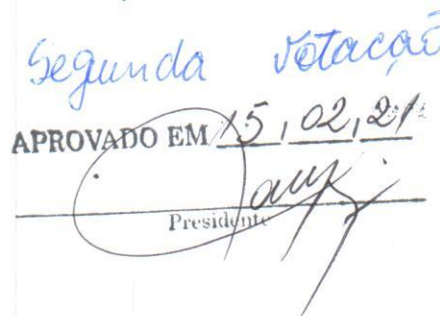 Segunda Votação
APROVADO EM 15, 02, 21
Presidente